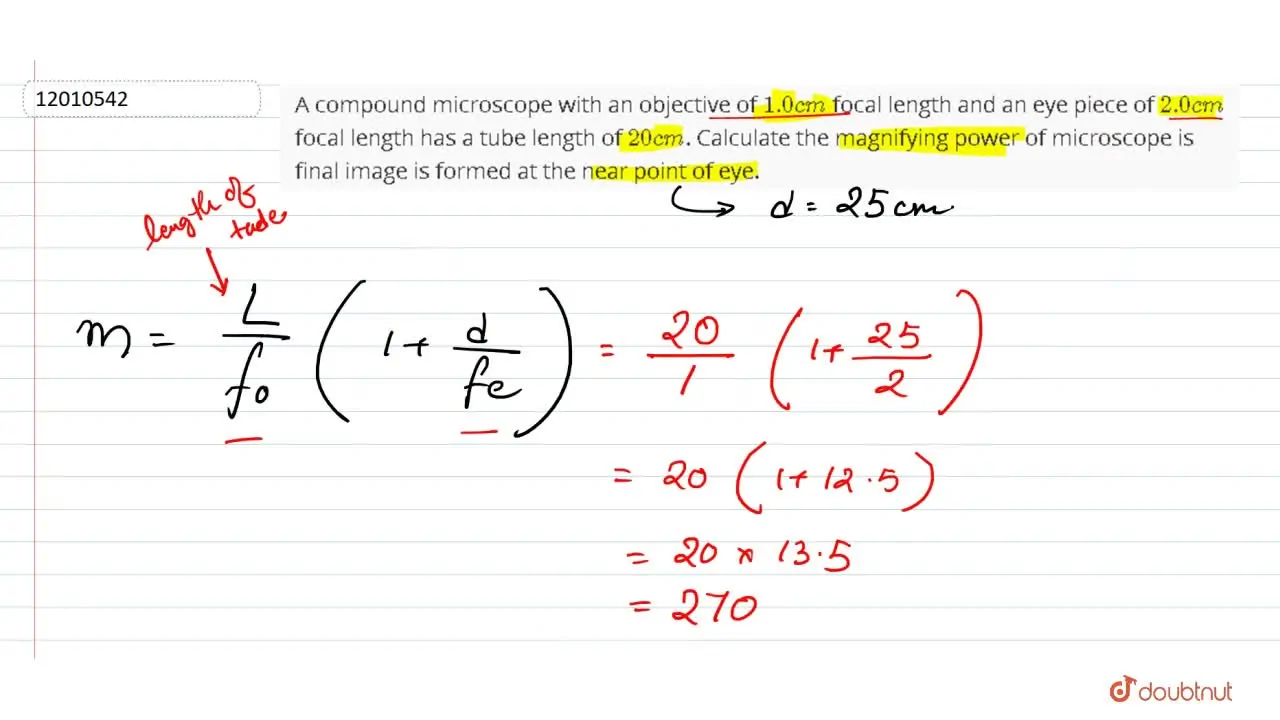 12010542
A compound microscope with an objective of 1.0cm focal length and an eye piece of 2.0cm
focal length has a tube length of 20cm. Calculate the magnifying power of microscope is
final image is formed at the near point of eye.
d = 25 cm
length of
tude
m = L/fo ( 1 + d/fe ) = 20/1 ( 1 + 25/2 )
= 20 ( 1 + 12.5 )
= 20 × 13.5
= 270
doubtnut